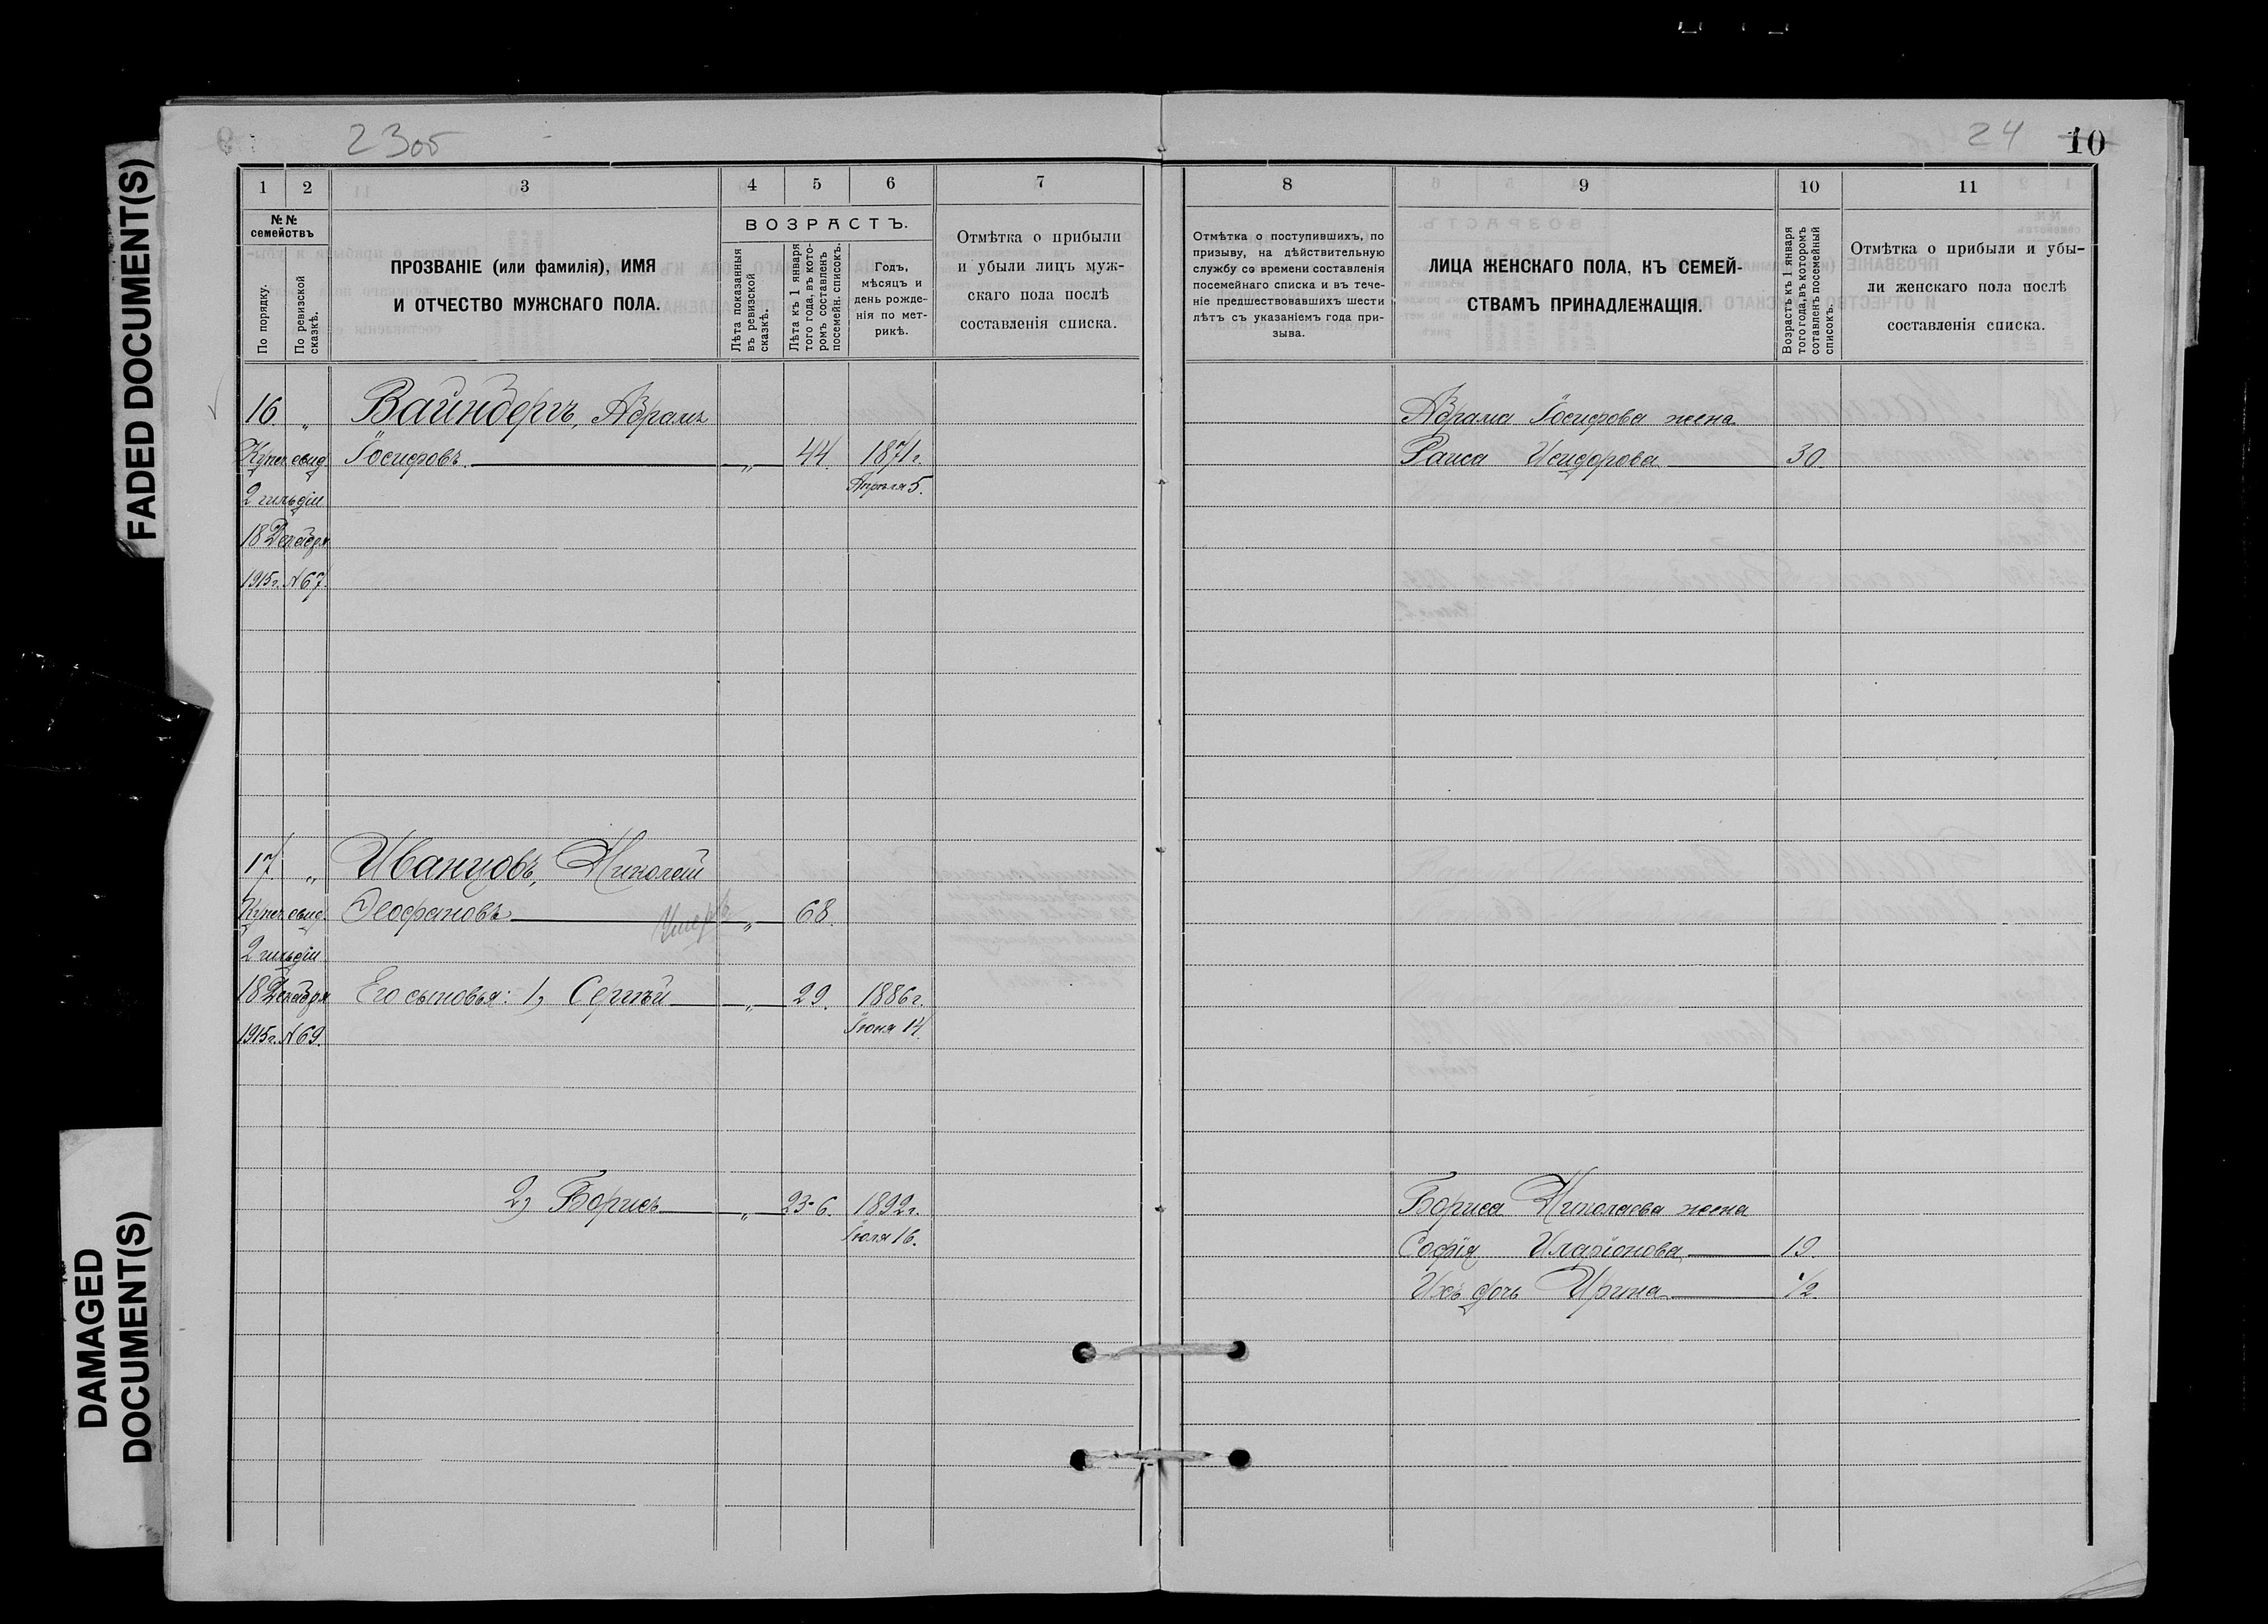 FADED DOCUMENT(S)
DAMAGED
DOCUMENT(S)
23об
24 10
1 2 3 4 5 6 7
№№
семействъ
По порядку.
По ревизской
сказкѣ.
ПРОЗВАНІЕ (или фамилія), ИМЯ
И ОТЧЕСТВО МУЖСКАГО ПОЛА.
ВОЗРАСТЪ.
Лѣта показанныя
въ ревизской
сказкѣ.
Лѣта къ 1 января
того года, въ кото-
ромъ составленъ
посемейн. списокъ.
Годъ,
мѣсяцъ и
день рожде-
нія по мет-
рикѣ.
Отмѣтка о прибыли
и убыли лицъ муж-
скаго пола послѣ
составленія списка.
16. „ Вайнбергъ, Абрамъ
Купеч. свид. Іосифовъ „ 44. 1871 г.
2 гильдіи Апрѣля 5.
18 Декабря
1915 г. № 67.
17. „ Иванцовъ, Николай
Купеч. свид. Ѳеофановъ Умеръ „ 68.
2 гильдіи
18 Декабря Его сыновья: 1) Сергѣй „ 29. 1886 г.
1915 г. № 69. Іюня 14.
2) Борисъ „ 23-6. 1892 г.
Іюля 16.
8 9 10 11
Отмѣтка о поступившихъ, по
призыву, на дѣйствительную
службу со времени составленія
посемейнаго списка и въ тече-
ніе предшествовавшихъ шести
лѣтъ съ указаніемъ года при-
зыва.
ЛИЦА ЖЕНСКАГО ПОЛА, КЪ СЕМЕЙ-
СТВАМЪ ПРИНАДЛЕЖАЩІЯ.
Возрастъ къ 1 января
того года, въ которомъ
сотавленъ посемейный
списокъ.
Отмѣтка о прибыли и убы-
ли женскаго пола послѣ
составленія списка.
Абрама Іосифова жена
Раиса Исидорова 30.
Бориса Николаева жена
Софія Иларіонова 19.
Ихъ дочь Ирина 1/2.